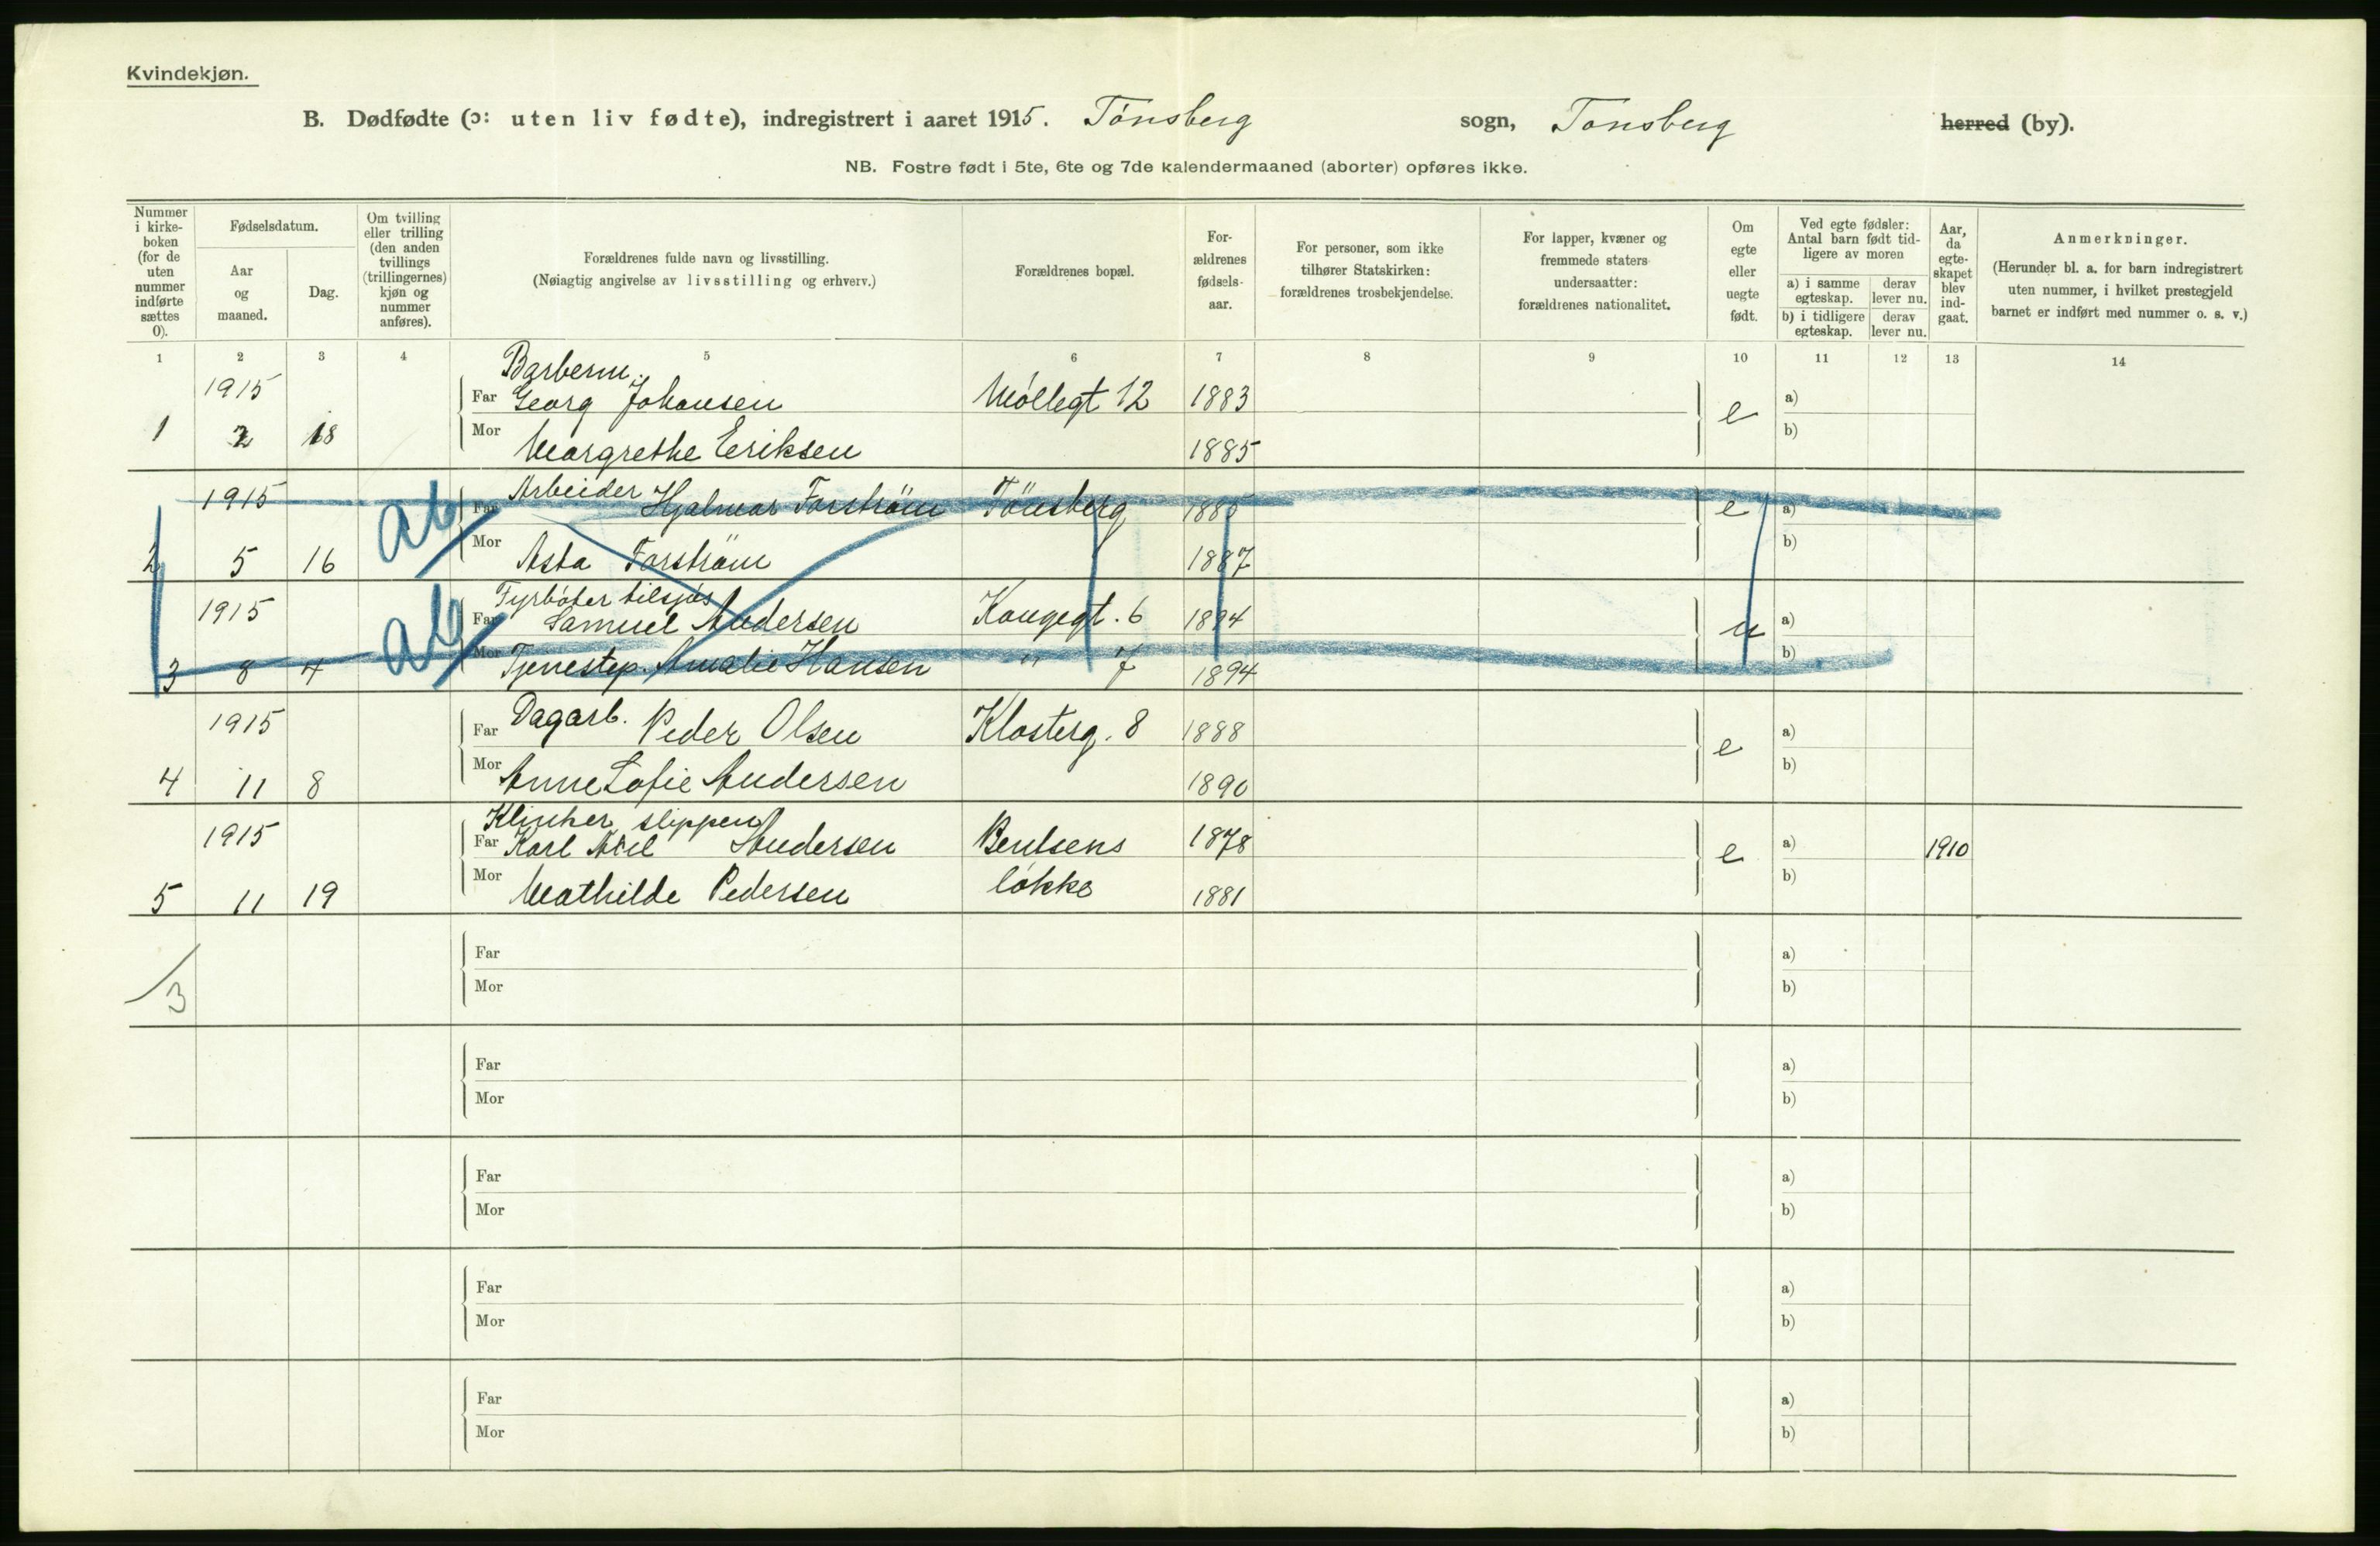 Kvindekjøn.
B. Dødfødte (ɔ: uten liv fødte), indregistrert i aaret 1915. Tønsberg sogn, Tønsberg herred (by).
NB. Fostre født i 5te, 6te og 7de kalendermaaned (aborter) opføres ikke.
Nummer i kirke-boken (for de uten nummer indførte sættes 0).
Fødselsdatum.
Aar og maaned.
Dag.
Om tvilling eller trilling (den anden tvillings (trillingernes) kjøn og nummer anføres).
Forældrenes fulde navn og livsstilling.
(Nøiagtig angivelse av livsstilling og erhverv.)
Forældrenes bopæl.
For-ældrenes fødsels-aar.
For personer, som ikke tilhører Statskirken: forældrenes trosbekjendelse.
For lapper, kvæner og fremmede staters undersaatter: forældrenes nationalitet.
Om egte eller uegte født.
Ved egte fødsler: Antal barn født tid-ligere av moren
a) i samme egteskap.
derav lever nu.
b) i tidligere egteskap.
derav lever nu.
Aar, da egte-skapet blev ind-gaat.
Anmerkninger.
(Herunder bl. a. for barn indregistrert uten nummer, i hvilket prestegjeld barnet er indført med nummer o. s. v.)
1 2 3 4 5 6 7 8 9 10 11 12 13 14
Barberm.
1915 Far Georg Johansen Møllegt 12 1883 e a)
1 2 18 Mor Margrethe Eriksen 1885 b)
1915 ab Far Arbeider Hjalmar Forström Tönsberg 1885 e a)
2 5 16 Mor Asta Forström 1887 b)
Fyrbøter tilsjøs
1915 ab Far Samuel Andersen Kongegt. 6 1894 u a)
3 8 4 Mor Tjenestep. Amalie Hansen " 7 1894 b)
1915 Far Dagarb. Peder Olsen Klosterg. 8 1888 e a)
4 11 8 Mor Anne Sofie Andersen 1890 b)
Klinker slippen
1915 Far Karl Axel Andersen Bentsens 1878 e a) 1910
5 11 19 Mor Mathilde Pedersen løkke 1881 b)
Far a)
3 Mor b)
Far a)
Mor b)
Far a)
Mor b)
Far a)
Mor b)
Far a)
Mor b)